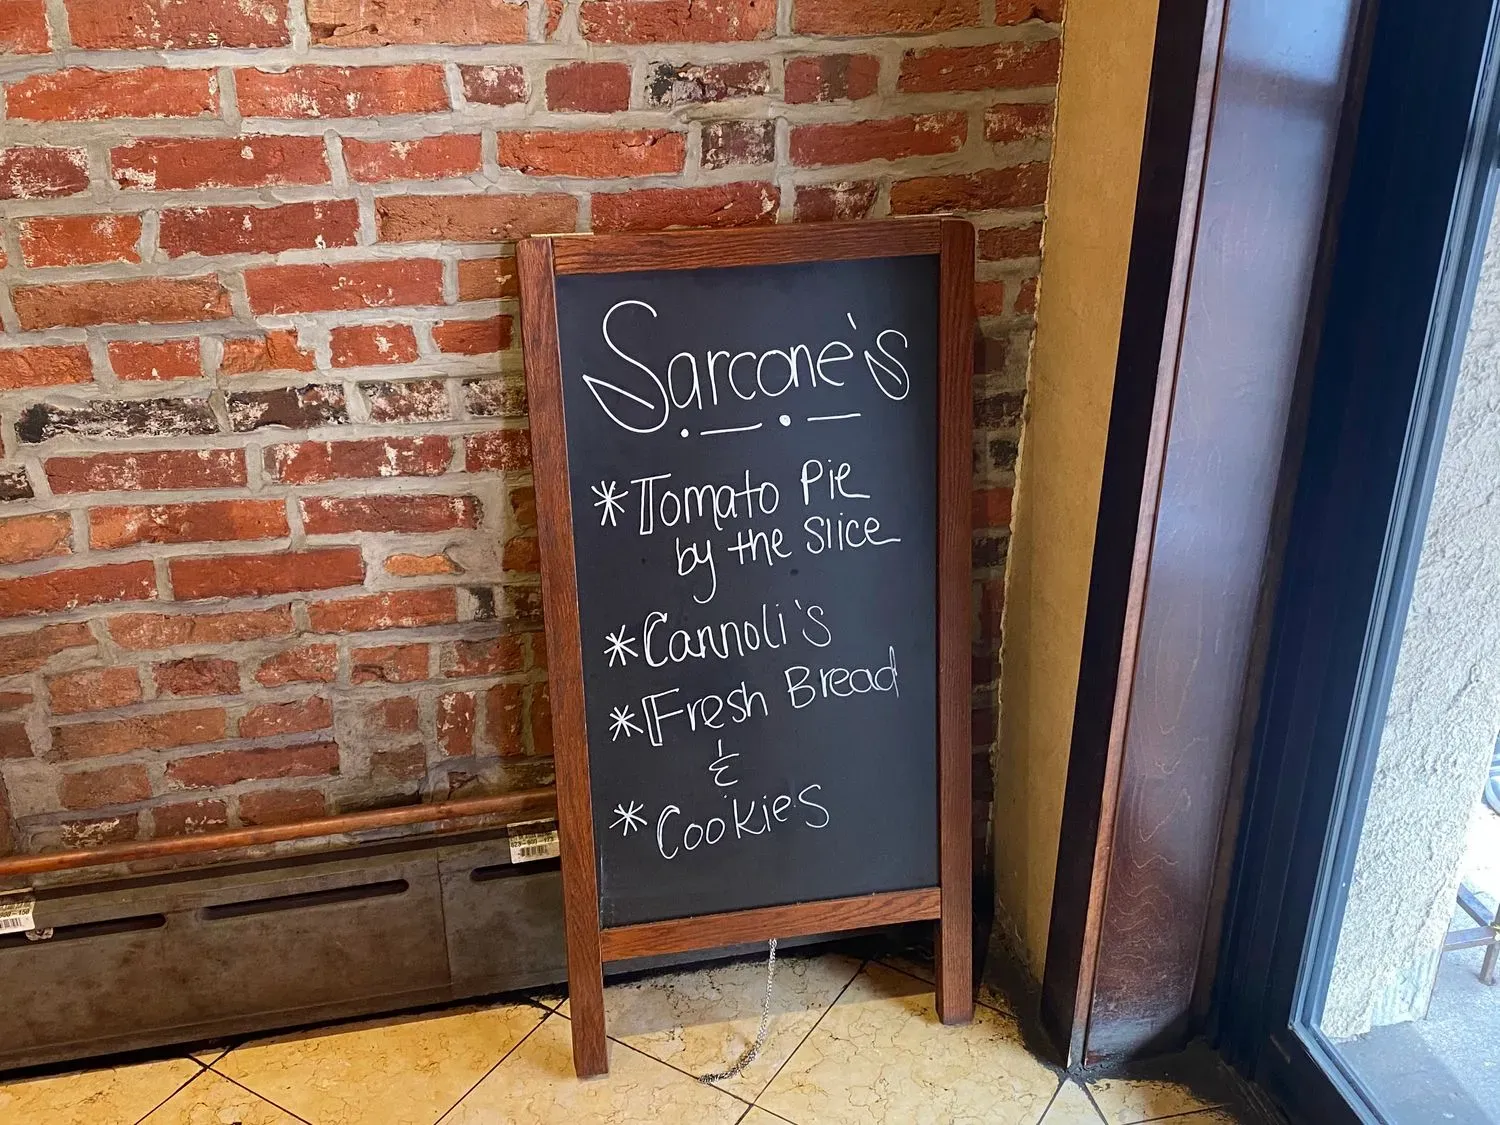 Sarcone's
*Tomato Pie
by the Slice
*Cannoli's
*Fresh Bread
&
*Cookies